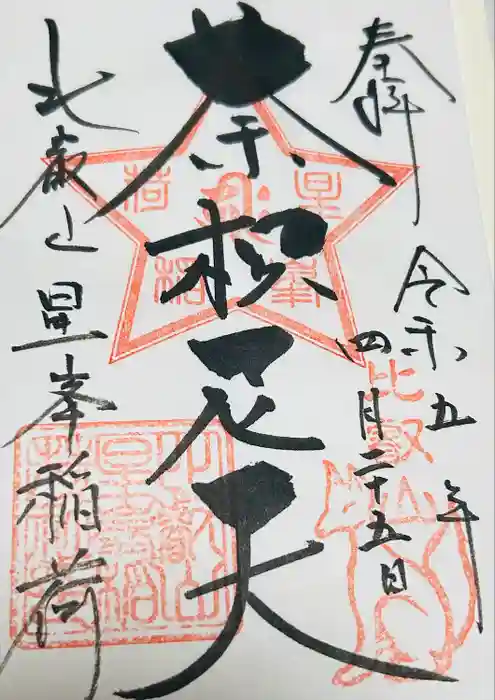 奉拝
令和五年
四月二十五日
荼枳尼天
北叡山星峯稲荷
比叡
星峯稲荷